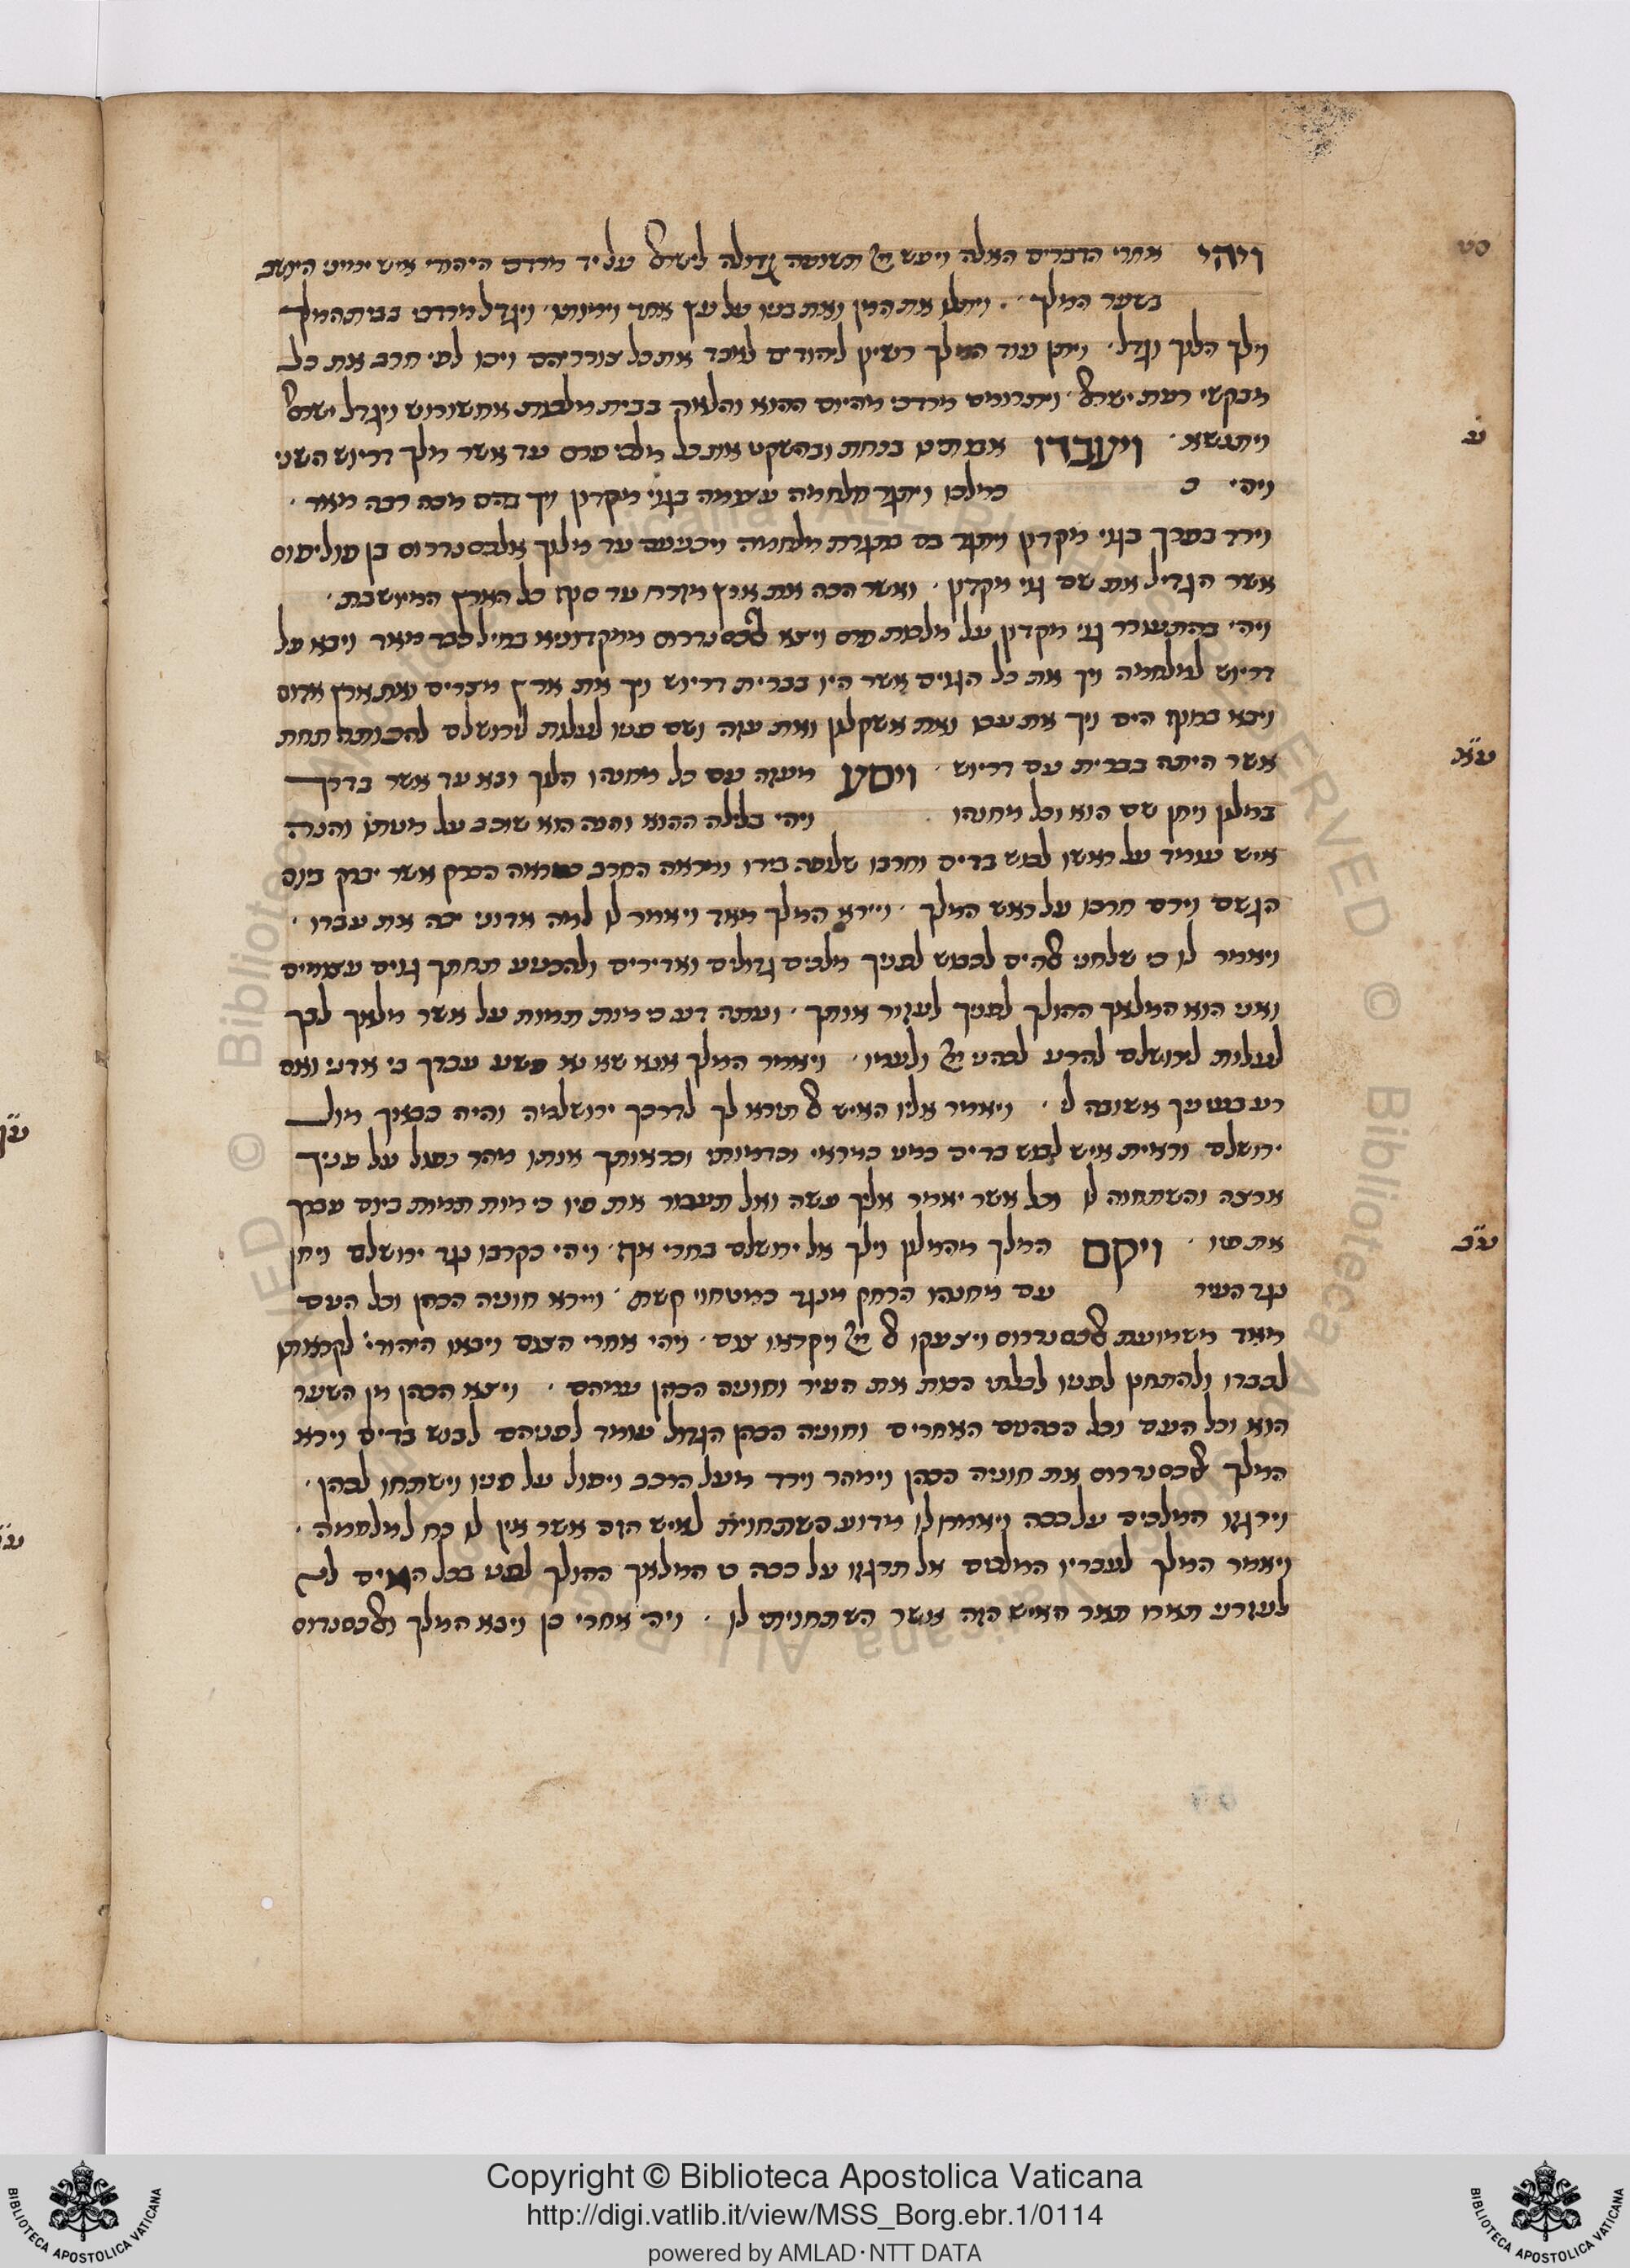 ויהי אחרי הדברים האלה ויעש יי תשועה גדולה לישראל על יד מרדכי היהודי איש ימיני היושב
בשער המלך . ויתלו את המן ואת בניו על עץ אחד וימותו . ויגדל מרדכי בבית המלך
וילך הלוך וגדל . ויתן עוד המלך רשיון ליהודים לאבד את כל צורריהם ויכו לפי חרב את כל
מבקשי רעת ישראל . ויתרומם מרדכי מהיום ההוא והלאה בבית מלכות אחשורוש ויגדל ישראל
ויתנשא . ויעבדו בנחת ובהשקט את כל מלכי פרס עד אשר מלך דריוש השני
ויהי כ כמלכו ויתגר מלחמה עצומה בגוי מקדון ויך בהם מכה רבה מאד .
וירד בפרך בגוי מקדון ויתגר בם בתגרת מלחמה ויכניעם עד מלוך אלכסנדרוס בן פוליפוס
אשר הגדיל את שם גוי מקדון . ואשר הכה את ארץ מזרח עד סוף כל הארץ המיושבת .
ויהי בהתעורר גוי מקדון על מלכות פרס ויצא אלכסנדרוס ממקדוניא בחיל כבד מאד ויבא על
דריוש למלחמה ויך את כל הגוים אשר היו בברית דריוש ויך את ארץ מצרים ואת ארץ אדום
ויבא בחוף הים ויך את עכו ואת אשקלון ואת עזה ושם פניו לעלות לירושלם להכותה תחת
אשר היתה בברית עם דריוש . ויסע מעזה עם כל מחנהו הלוך ובא עד אשר בדרך
במלון ויחן שם הוא וכל מחנהו ויהי בלילה ההוא והנה הוא שוכב על מטתו והנה
איש עומד על ראשו לבוש בדים וחרבו שלופה בידו ומראה החרב כמראה הברק אשר יברק ביום
הגשם וירם חרבו על ראש המלך . ויירא המלך מאד ויאמר לו למה אדוני יכה את עבדו .
ויאמר לו כי שלחני אלהים לכבוש לפניך מלכים גדולים ואדירים ולהכניע תחתך גוים עצומים
ואני הוא המלאך ההולך לפניך לעזור אותך . ועתה דע כי מות תמות על אשר מלאך לבך
לעלות לירושלם להרע לכהני יי ולעמו . ויאמר המלך אנא שא נא פשע עבדך כי אדני ואם
רע בעיניך אשובה לי . ויאמר אליו האיש אל תירא לך לדרכך ירושלמה והיה כבואך מול
ירושלם וראית איש לבוש בדים כמוני כמראי וכדמותי וכראותך אותו מהר נפול על פניך
ארצה והשתחוה לו וכל אשר יאמר אליך עשה ואל תעבור את פיו כי מות תמות ביום עברך
את פיו . ויקם המלך מהמלון וילך אל ירושלם בחרי אף . ויהי כקרבו נגד ירושלם ויחן
נגד העיר עם מחנהו הרחק מנגד כמטחוי קשת . ויירא חוניה הכהן וכל העם
מאד משמועת אלכסנדרוס ויצעקו אל יי ויקראו צום . ויהי אחרי הצום ויבאו היהודי׳ לקראתו
לכבדו ולהתחנן לפניו לבלתי הכות את העיר וחוניה הכהן עמהם . ויצא הכהן מן השער
הוא וכל העם וכל הכהנים האחרים וחוניה הכהן הגדול עומד לפניהם לבוש בדים וירא
המלך אלכסנדרוס את חוניה הכהן וימהר וירד מעל הרכב ויפול על פניו וישתחו לכהן .
וירגזו המלכים על ככה ויאמרו לו מדוע השתחוית לאיש הזה אשר אין לו כח למלחמה .
ויאמר המלך לעבדיו המלכים אל תרגזו על ככה כי המלאך ההולך לפני בכל הגוים
לעזרני תארו תאר האיש הזה אשר השתחויתי לו . ויהי אחרי כן ויבא המלך אלכסנדרוס
סט
ע
ע״א
ע״ב
Copyright © Biblioteca Apostolica Vaticana
http://digi.vatlib.it/view/MSS_Borg.ebr.1/0114
powered by AMLAD·NTT DATA